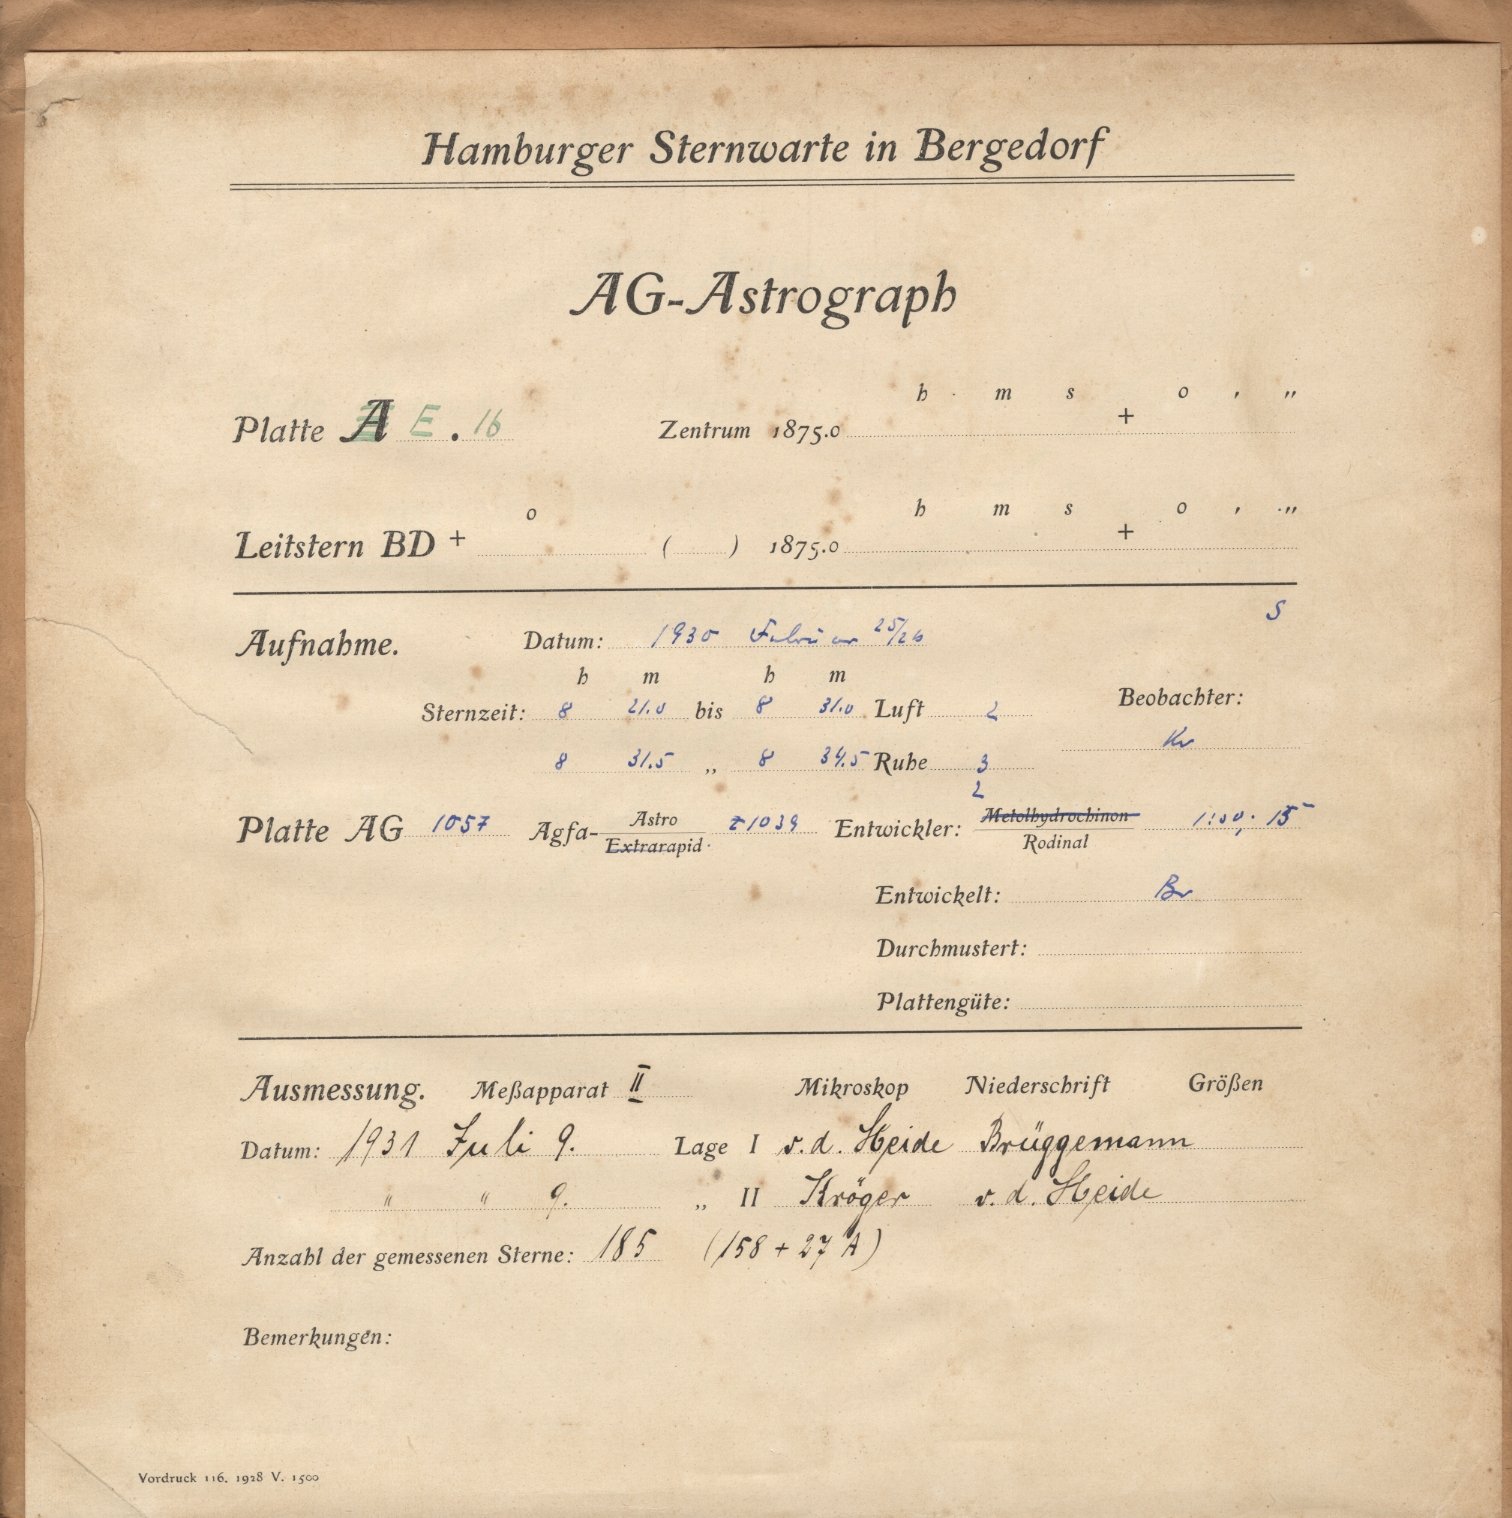 Hamburger Sternwarte in Bergedorf
AG-Astrograph
h m s o ' "
Platte A E . 16 Zentrum 1875.0 +
o h m s o ' "
Leitstern BD + ( ) 1875.0 +
S
Aufnahme. Datum: 1930 Februar 25/26
h m h m
Sternzeit: 8 21.0 bis 8 31.0 Luft 2 Beobachter:
Kr
8 31.5 „ 8 34.5 Ruhe 3
2
Platte AG 1057 Agfa- Astro Extrarapid 1039 Entwickler: Metolhydrochinon Rodinal 15
Entwickelt: Br
Durchmustert:
Plattengüte:
Ausmessung. Meßapparat II Mikroskop Niederschrift Größen
Datum: 1931 Juli 9. Lage I v. d. Heide Brüggemann
" " 9. „ II Kröger v. d. Heide
Anzahl der gemessenen Sterne: 185 (158 + 27 A)
Bemerkungen:
Vordruck 116. 1928 V. 1500